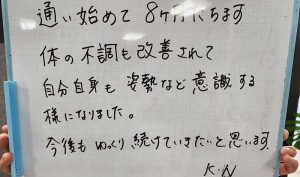 通い始めて 8ヶ月たちます
体の不調も改善されて
自分自身も 姿勢など意識する
様になりました。
今後も ゆっくり続けていきたいと思います。
K.N